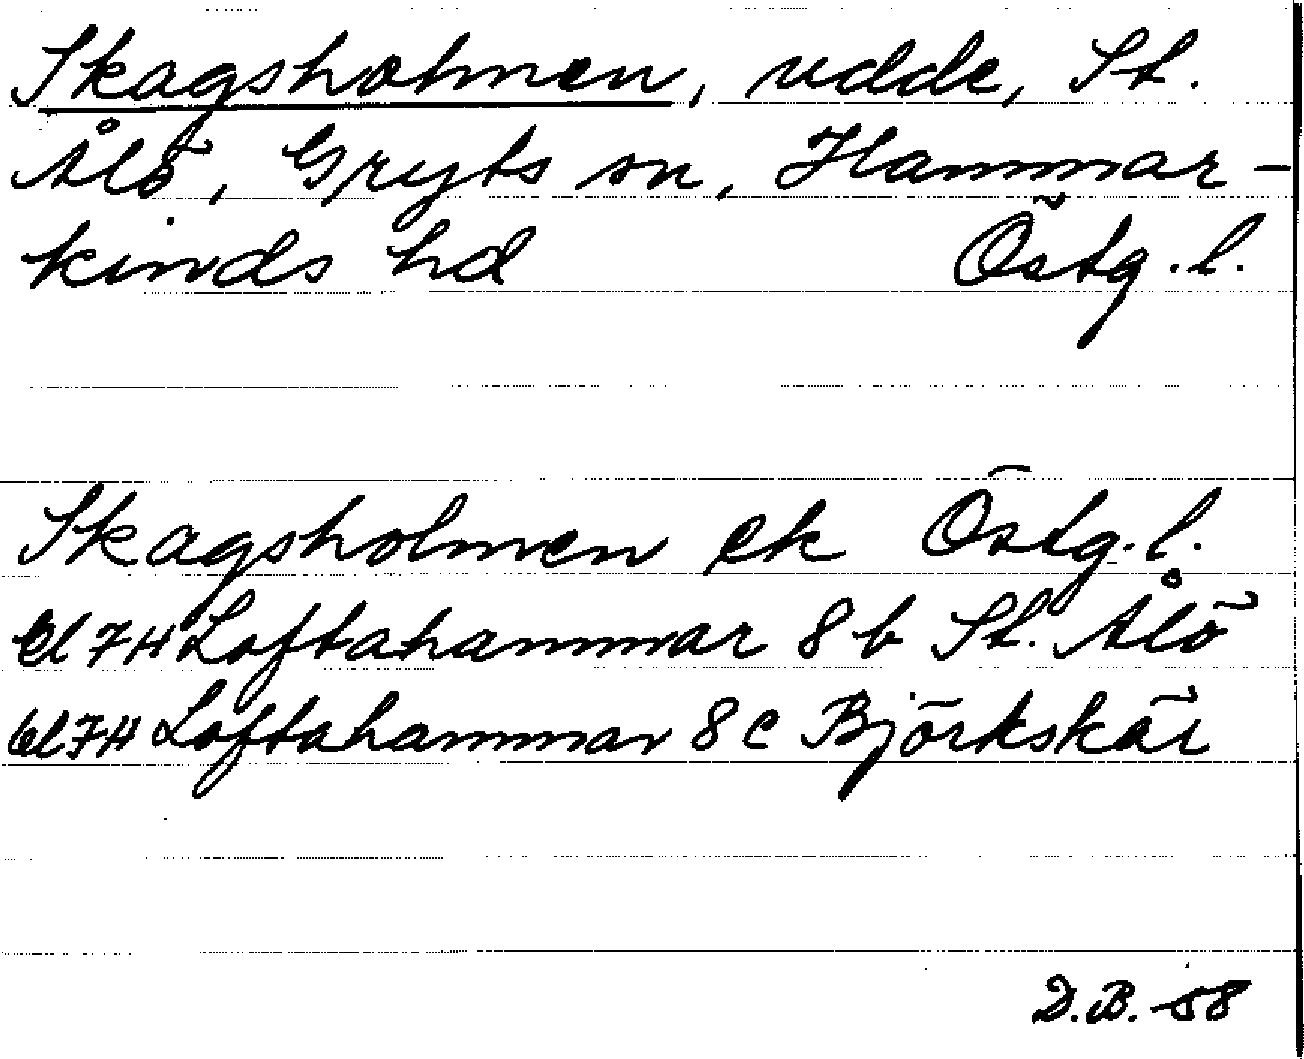 Skagsholmen, udde, St.
Ålö, Gryts sn, Hammar-
kinds hd Östg.l.
Skagsholmen ek Östg.l.
bl 7H Loftahammar 8 b St. Ålö
bl 7H Loftahammar 8 c Björkskär
D.B. 58